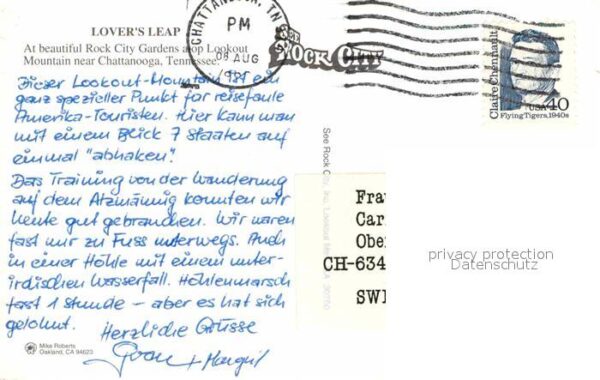 LOVER'S LEAP
At beautiful Rock City Gardens atop Lookout
Mountain near Chattanooga, Tennessee.
Dieser Lookout-Mountain ist ein
ganz spezieller Punkt für reisefaule
Amerika-Touristen. Hier kann man
mit einem Blick 7 Staaten auf
einmal "abhaken".
Das Training von der Wanderung
auf dem Atzmännig konnten wir
heute gut gebrauchen. Wir waren
fast nur zu Fuss unterwegs. Auch
in einer Höhle mit einem unter-
irdischen Wasserfall. Höhlenmarsch
fast 1 Stunde - aber es hat sich
gelohnt.
Herzliche Grüsse
+ Margrit
Mike Roberts
Oakland, CA 94623
CHATTANOOGA, TN
PM
08 AUG
SEE
ROCK CITY
Claire Chennault
USA 40
Flying Tigers, 1940s
See Rock City, Inc. Lookout
30750
Fra
Car
Obe
CH-634
SWI
privacy protection
Datenschutz